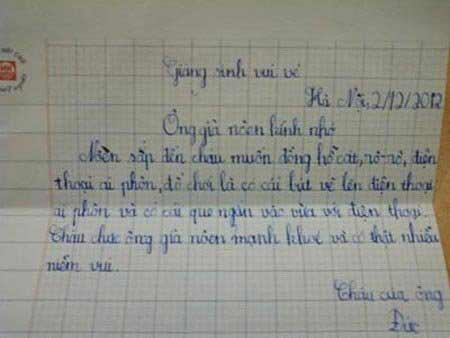 Giáng sinh vui vẻ
Hà Nội, 2/12/2012
Ông già nôen kính nhớ
Nôen sắp đến cháu muốn đồng hồ cát, rô-rô, điện
thoại ai phôn, đồ chơi là có cái bút vẽ lên điện thoại
ai phôn và có cái que ngắn vào vừa với điện thoại.
Cháu chúc ông già nôen mạnh khoẻ và có thật nhiều
niềm vui.
Cháu của ông
Đức